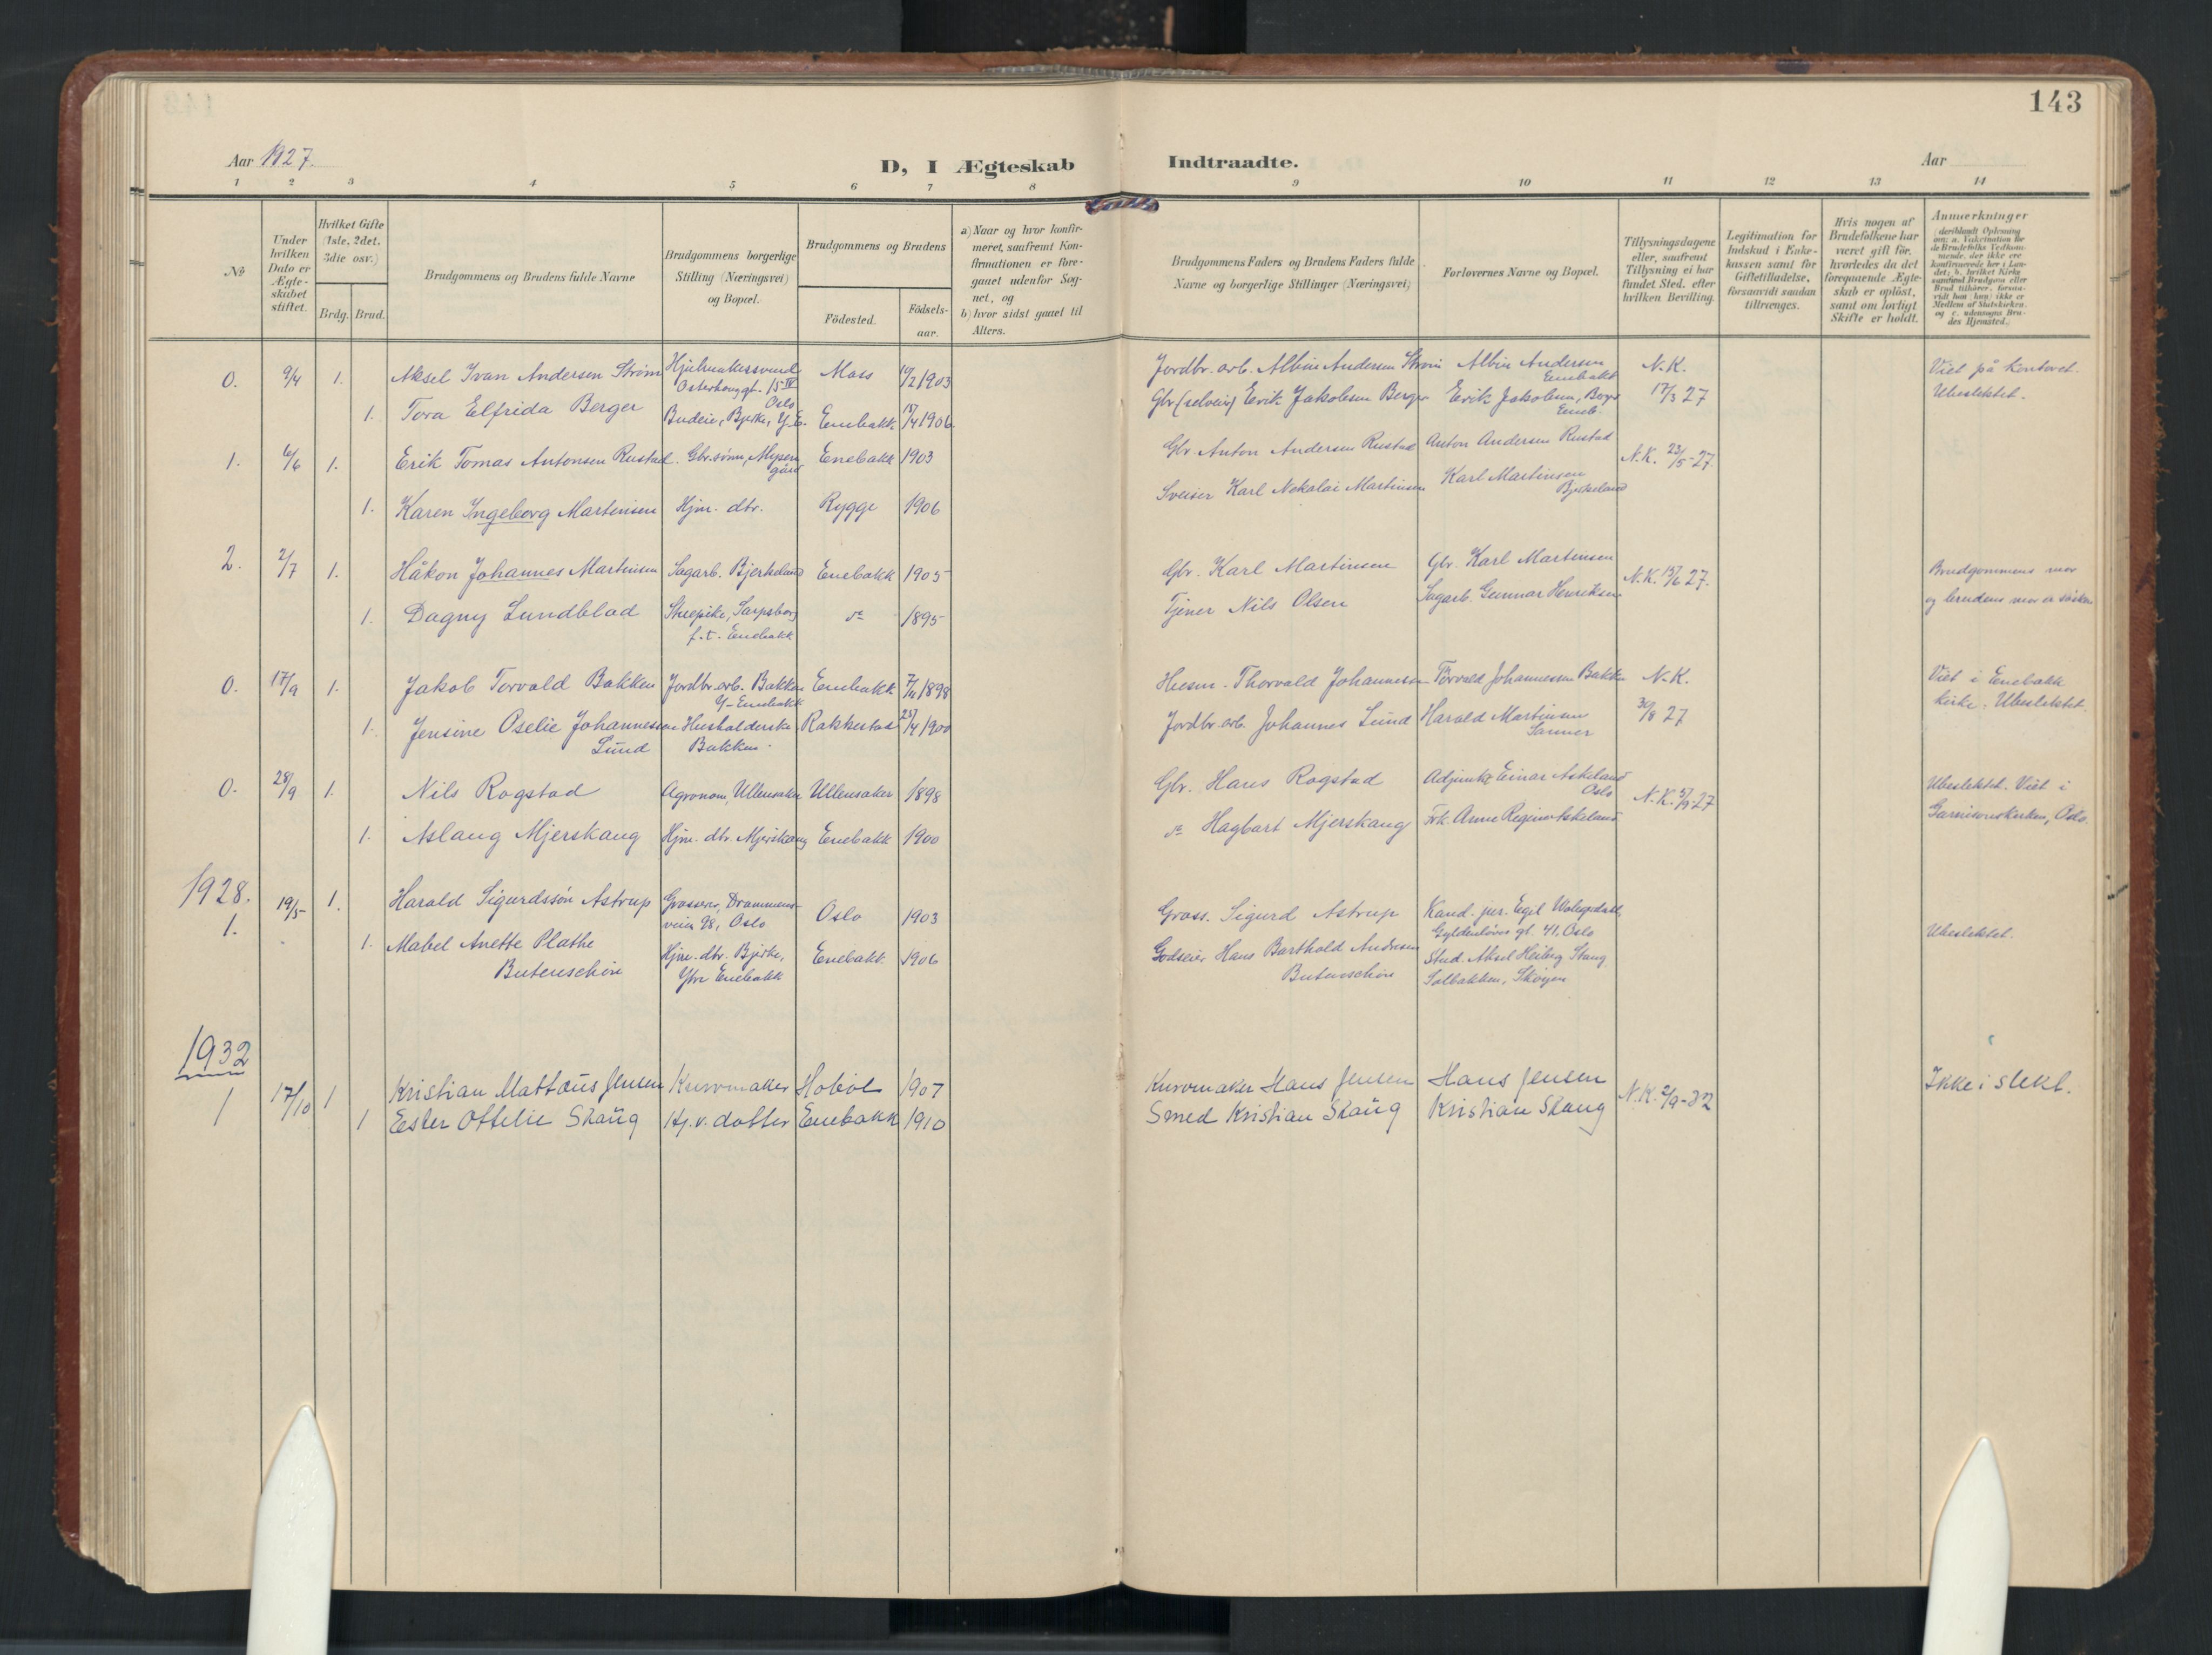 143
Aar 1927.
D, I Ægteskab Indtraadte.
Aar
1 2 3 4 5 6 7 8 9 10 11 12 13 14
No
Under hvilken Dato er Ægteskabet stiftet.
Hvilket Gifte (1ste, 2det, 3die osv.)
Brdg. Brud.
Brudgommens og Brudens fulde Navne
Brudgommens borgerlige Stilling (Næringsvei) og Bopæl.
Brudgommens og Brudens
Födested.
Födsels-aar.
a) Naar og hvor konfir-
meret, saafremt Kon-
firmationen er fore-
gaaet udenfor Sog-
net, og
b) hvor sidst gaaet til
Alters.
Brudgommens Faders og Brudens Faders fulde
Navne og borgerlige Stillinger (Næringsvei)
Forlovernes Navne og Bopæl.
Tillysningsdagene
eller, saafremt
Tillysning ei har
fundet Sted, efter
hvilken Bevilling.
Legitimation for
Indskud i Enke-
kassen samt for
Giftetilladelse,
forsaavidt saadan
tiltrænges.
Hvis nogen af
Brudefolkene har
været gift för,
hvorledes da det
foregaaende Ægte-
skab er oplöst,
samt om lovligt
Skifte er holdt.
Anmærkninger
(deriblandt Oplysning
om: a. Vakcination for
de Brudefolks Vedkom-
mende, der ikke ere
konfirmerede her i Lan-
det; b. hvilket Kirke-
samfund Brudgom eller
Brud tilhörer, forsaa-
vidt han (hun) ikke er
Medlem af Statskirken,
og c. udensogns Bru-
des Hjemsted.)
0. 9/4 1. Aksel Ivan Andersen Strøm Hjulmakersvend Osterhausgt. 15 IV Oslo Moss 19/2 1903 Jordbr. arb. Albin Andersen Strøm Albin Andersen Enebakk N.K. Viet på kontoret.
1. Tora Elfrida Berger Budeie, Bjerke, Y.E. Enebakk 18/4 1906 Gbr (selveier) Erik Jakobsen Berger Erik Jakobsen, Berger Eneb. 17/3 27 Ubeslektet.
1. 6/6 1. Erik Tomas Antonsen Rustad. Gbr.sønn, Mysen gård Enebakk 1903 Gbr Anton Andersen Rustad Anton Andersen Rustad N.K. 23/5-27
1. Karen Ingeborg Martinsen Hjm. dtr. Rygge 1906 Sveiser Karl Nekolai Martinsen Karl Martinsen Bjerkeland
2. 2/7 1. Håkon Johannes Martinsen Sagarb. Bjerkeland Enebakk 1905 Gbr. Karl Martinsen Gbr. Karl Martinsen N.K. 15/6 27. Brudgommens mor
1. Dagny Lundblad Strepike, Sarpsborg f.t. Enebakk do 1895 Tjener Nils Olsen Sagarb. Gunnar Henriksen og brudens mor er søsken
0. 17/9 1. Jakob Torvald Bakken Jordbr.arb. Bakken Y-Enebakk Enebakk 7/11 1898 Husm. Thorvald Johannesen Torvald Johannessen Bakken N.K. Viet i Enebakk
1. Jensine Oselie Johannessen Lund Husholderske Bakken. Rakkestad 25/4 1900 Jordbr. arb. Johannes Lund Harald Martinsen Sanner 30/8 27 kirke. Ubeslektet.
0. 28/9 1. Nils Rogstad Agronom, Ullensaker Ullensaker 1898 Gbr. Hans Rogstad Adjunkt Einar Askeland Oslo N.K. 5/9-27 Ubeslektet. Viet i
1. Aslaug Mjerskaug Hjm. dtr. Mjerskaug Enebakk 1900 do Hagbart Mjerskaug Frk. Anne Regine Askeland Garnisonskirken, Oslo.
1928.
1. 19/5- 1. Harald Sigurdssøn Astrup Grosserer, Drammens-veien 98, Oslo Oslo 1903 Gross. Sigurd Astrup Kand. jur. Egil Gyldenløves gt. 41, Oslo
1. Mabel Anette Plathe Butenschøn Hjm. dtr. Bjerke, Ytre Enebakk Enebakk 1906 Godseier Hans Barthold Andresen Butenschøn Stud. Aksel Heiberg Stang Solbakken, Skøyen Ubeslektet.
1932
1 17/10 1 Kristian Mattæus Jensen Kurvmaker Hobøl 1907 Kurvmaker Hans Jensen Hans Jensen N.K. 2/9-32 Ikke i slekt.
1 Ester Ottelie Skaug Hj.v. datter Enebakk 1910 Smed Kristian Skaug Kristian Skaug